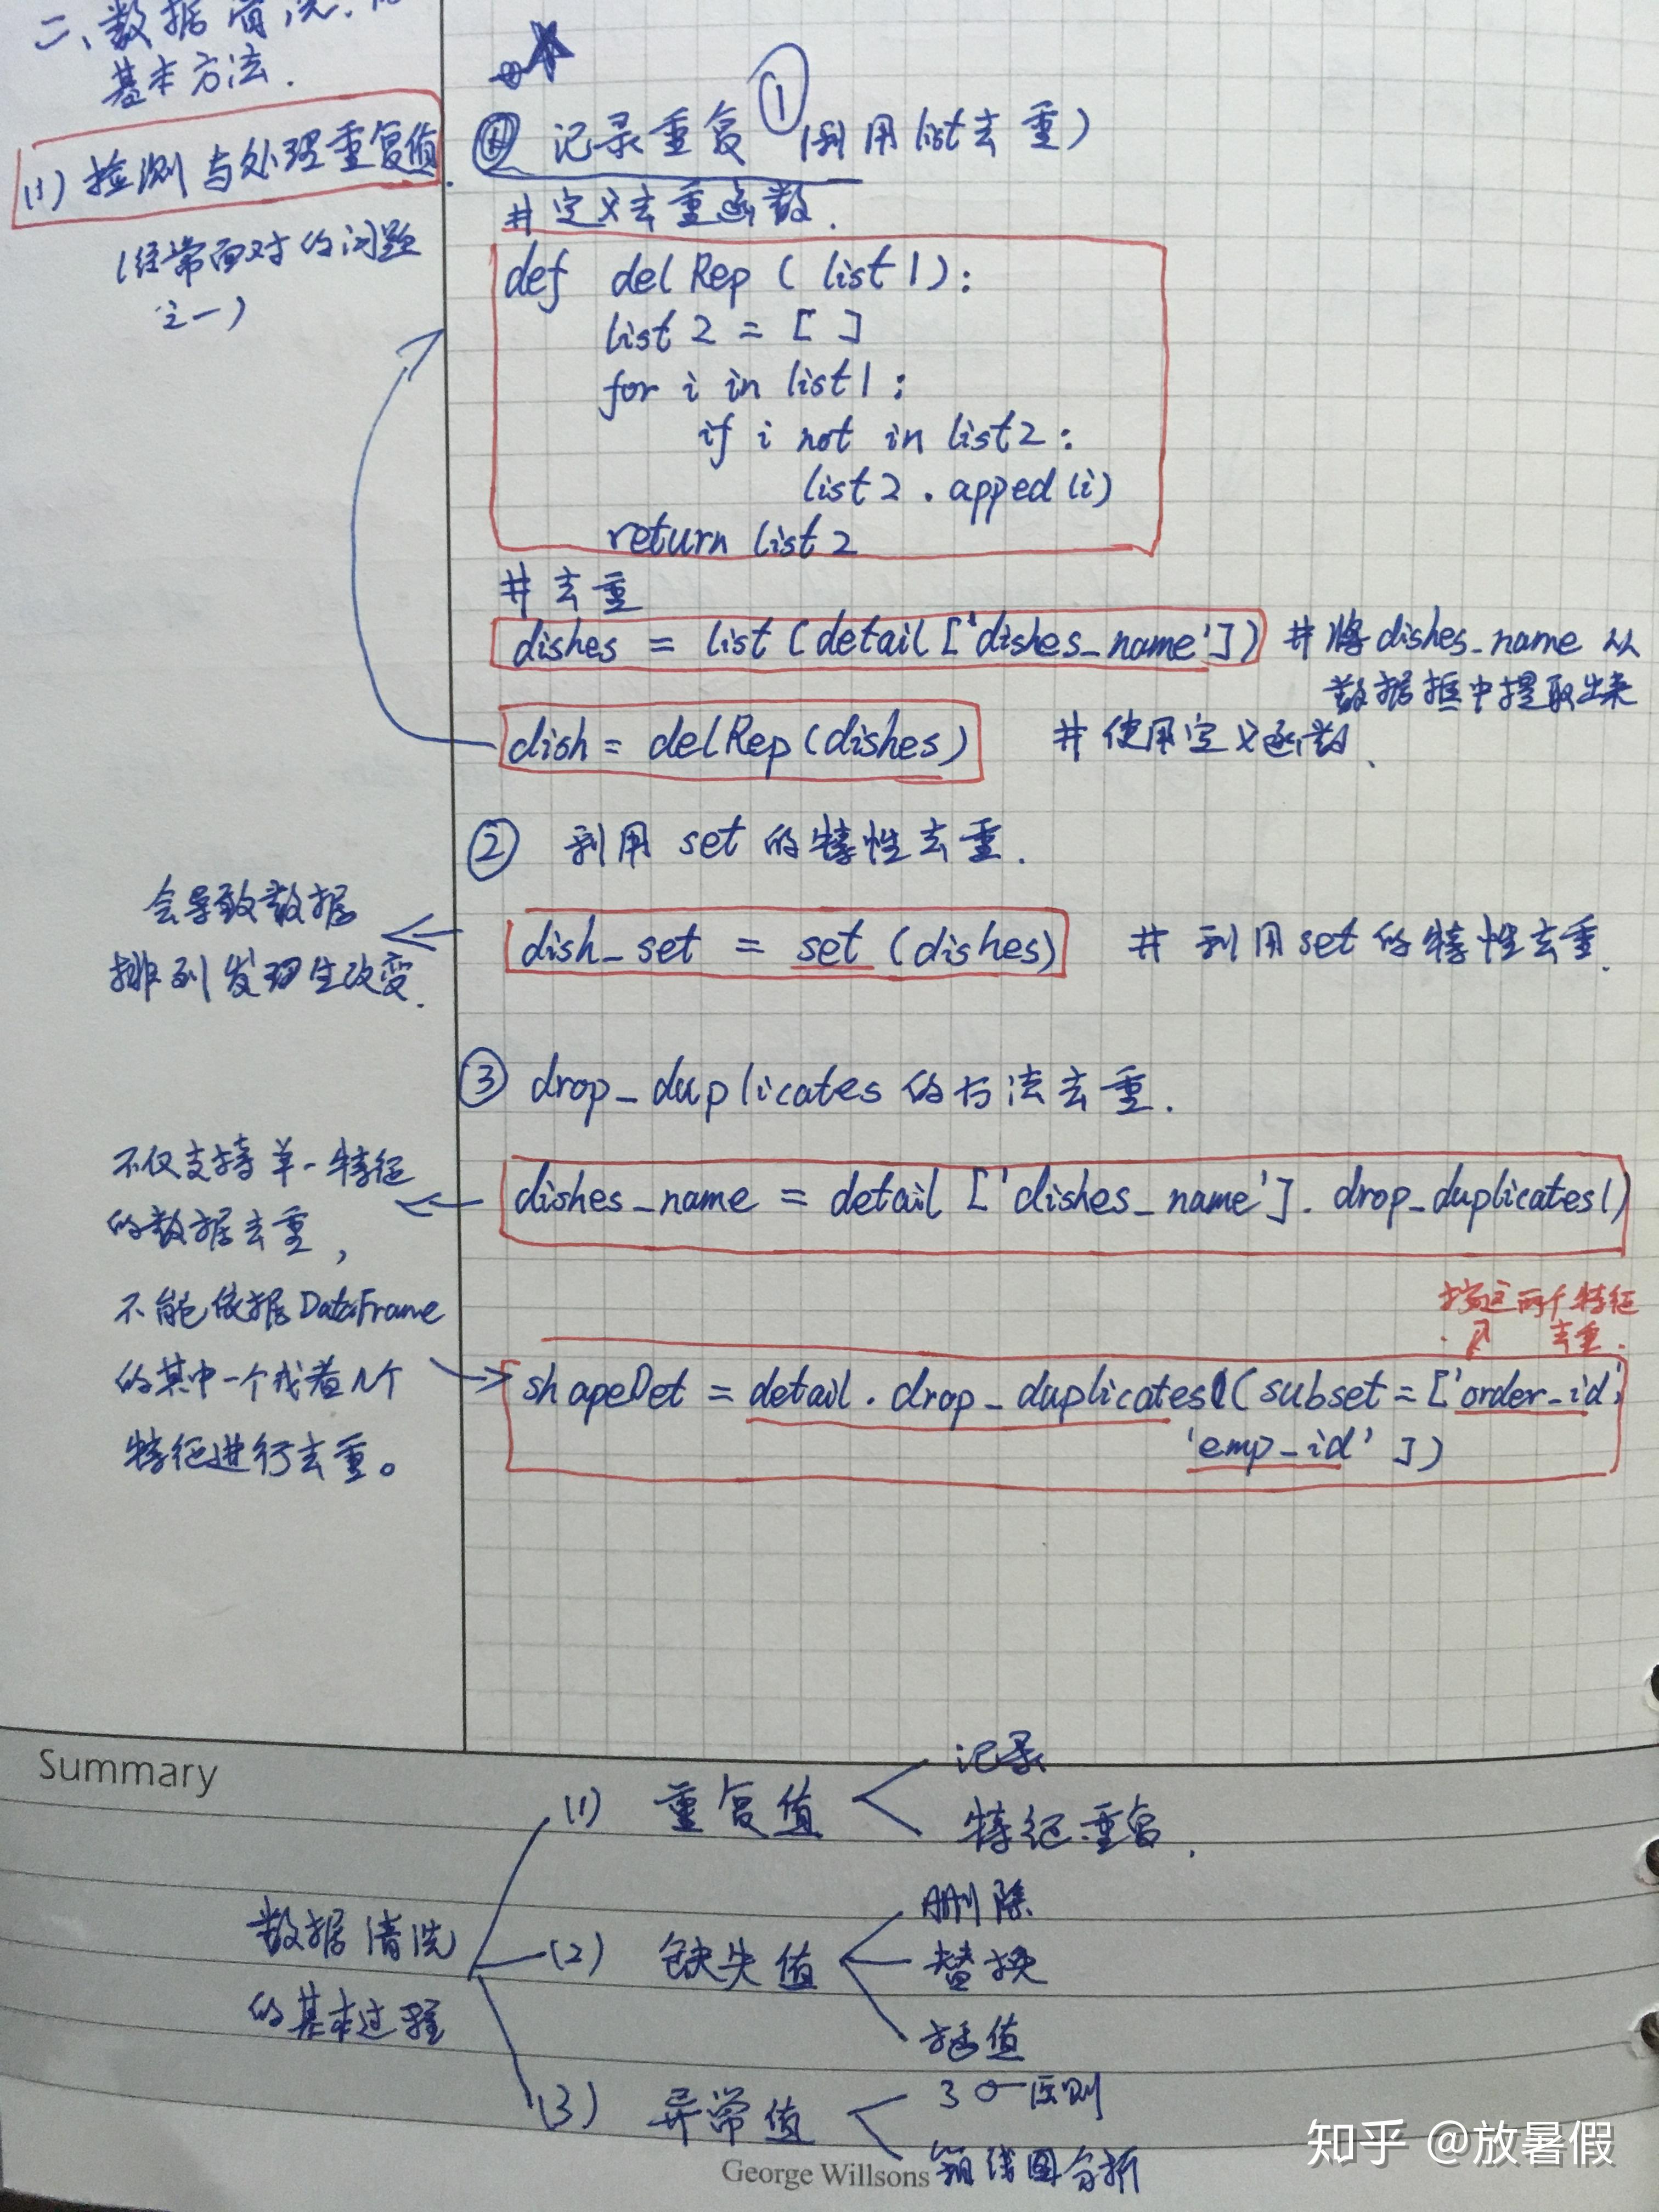 二、数据清洗的
基本方法.
(1) 检测与处理重复值.
(经常面对的问题
之一)
记录重复 ① (利用list去重)
# 定义去重函数.
def delRep ( list1 ):
list2 = [ ]
for i in list1 :
if i not in list2 :
list2 . apped (i)
return list2
# 去重
dishes = list (detail ['dishes_name']) # 将dishes_name 从
数据框中提取出来
dish = delRep (dishes) # 使用定义函数.
② 利用 set 的特性去重.
会导致数据
排列发现生改变.
dish_set = set (dishes) # 利用set的特性去重.
③ drop_duplicates 的方法去重.
不仅支持单一特征
的数据去重,
不能依据DataFrame
的其中一个或者几个
特征进行去重。
dishes_name = detail ['dishes_name']. drop_duplicates()
按这两个特征
去重.
shapeDet = detail . drop_duplicates((subset = ['order_id'
'emp_id' ])
Summary
数据清洗
的基本过程
(1) 重复值
记录
特征重复.
(2) 缺失值
删除
替换
插值
(3) 异常值
3σ原则
箱线图分析
George Willsons
知乎 @放暑假